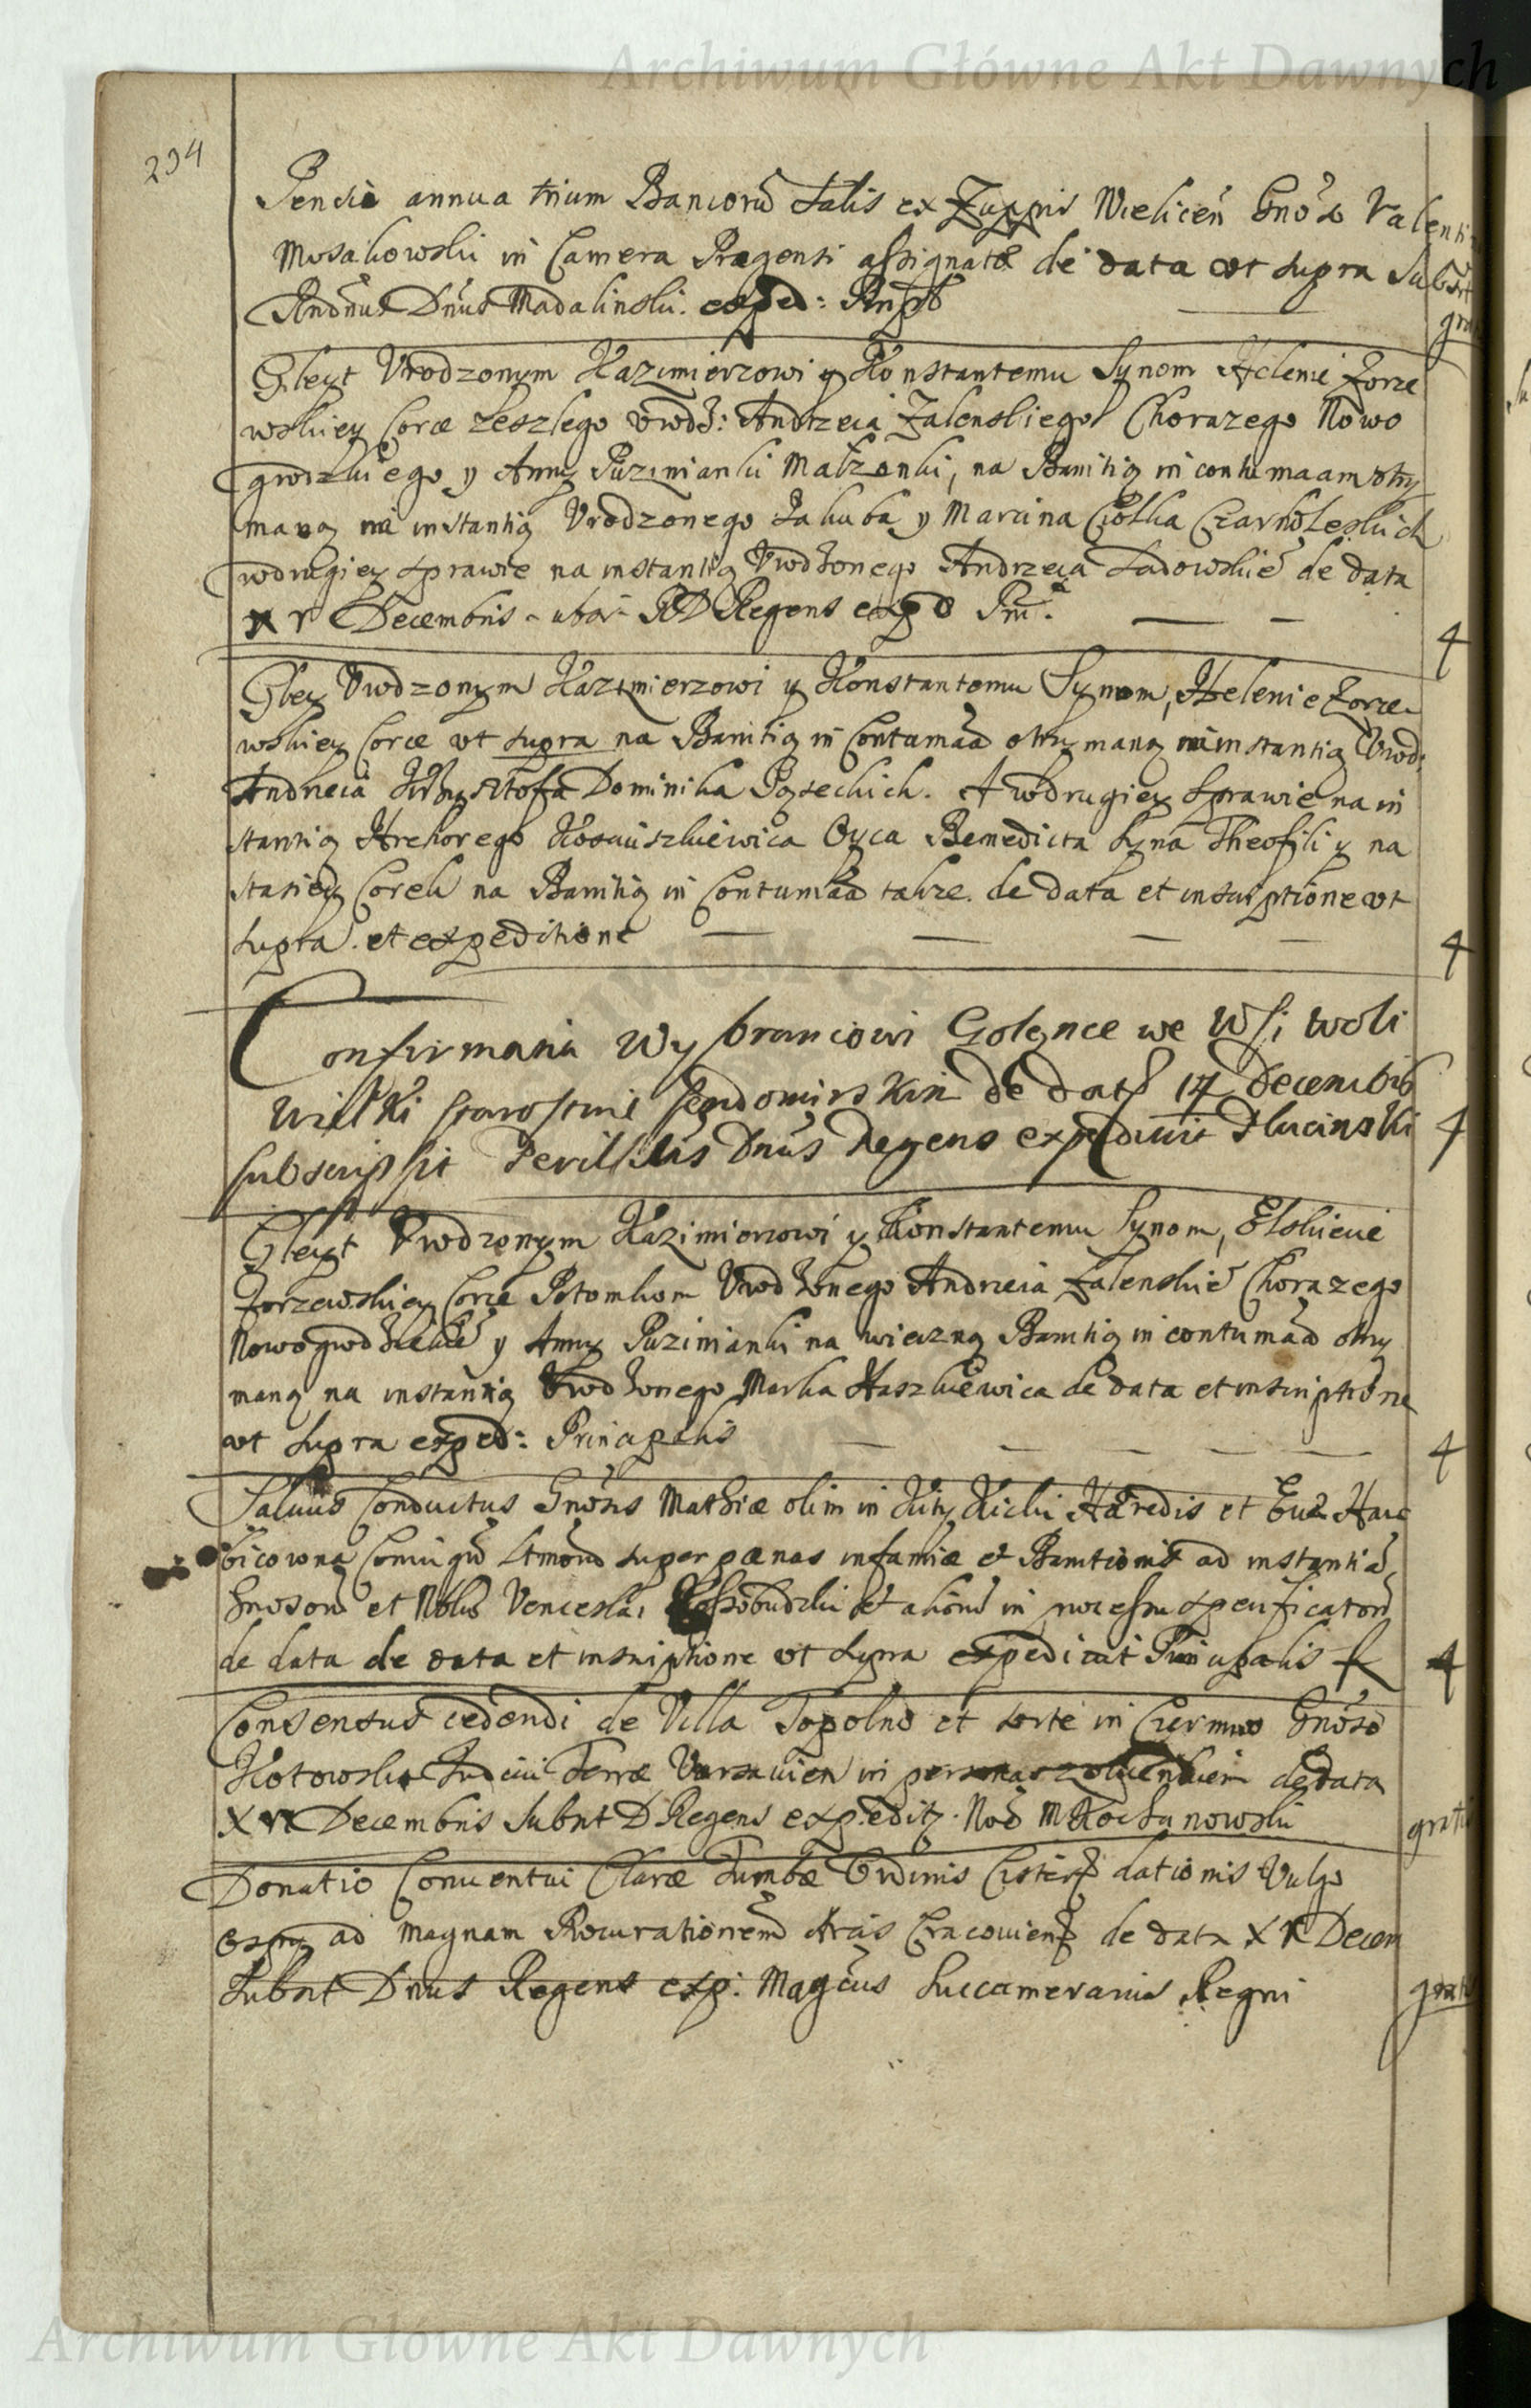 Archiwum Główne Akt Dawnych
234
Pensio annua trium Bancorū Salis ex Zuppis Wielicen Gnoso Valenti
Mosakowski in Camera Pragensi assignata de data vt supra Subst
Rndnus Dnus Madalinski. exped:
gra
Gleyt Vrodzonym Kazimierzowi y Konstantemu Synom Helenie Zorze
wskiey Corce Zeszlego vrodz: Andrzeia Zalenskiego Chorazego Nowo
grodzkiego y Anny Puzinianki Malzonki, na Banitią in contumaam otrzy
maną na instantią Vrodzonego Jakuba y Marcina Ciołka Czarnoleskich
wdrugiey sprawie na instantią Vrodzonego Andrzeia Sadowskie de data
XV Decembris Regens exp
4
Gley Vrodzonym Kazimierzowi y Konstantemu Synom, Helenie Zorze
wskiey Corce vt supra na Banitią in Contumaā otrzymaną na instantią Vrod:
Andrzeia Krzysztofa Dominika Pyseckich. A wdrugiey sprawie na in
stantią Hrehorego Kosciuszkiewica Oyca Benedicta Syna Theofili y na
stasiey Corek na Banitią in Contumaā takze. de data et inscriptione vt
supra. et expeditione
4
Confirmatia Wybrancowi Golynce we Wsi woli
wilki starostwie Sendomirskim de data 17 Decembris
subscripsit Perillris Dnus Regens expediuit Dlucinski
4
Gleyt Vrodzonym Kazimierzowi y Konstantemu Synom,
Zorzewskiey Corce Potomkom Vrodzonego Andrzeia Zalenskie Chorazego
Nowogrodzkie y Anny Puzinianki na wieczną Banitią in contumaā otrzy
maną na instantią Vrodzonego Marka Haszkiewica de data et inscriptione
vt supra exped: Principalis
4
Saluus Conductus Gnosis Mathiæ olim in Kicki Hæredis et Euæ
bicowna Coniugū super pœnas infamiæ et Banitionis ad instantiā
Gnosorū et Nobis Venceslai Kossobudzki et aliorū in processu specificatorū
de data de data et inscriptione vt supra expediuit Principalis
4
Consensus cedendi de Villa Topolno et sorte in Czermno Gnoso
Kotowski Judici Terræ Varsauien in de data
XV Decembris Subst D Regens expedit. Nob M Kochanowski
grati
Donatio Conuentui Claræ Tumbæ Ordinis Cisterc dationis vulgo
ospy ad magnam Procurationem Arcis Cracouiens de data XV Decem
Subst Dnus Regens exp: Magcus Succamerarius Regni
gratis
Archiwum Główne Akt Dawnych